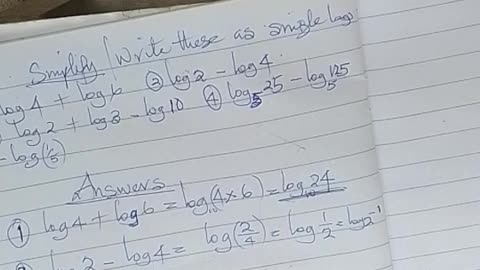 Simplify / Write these as single logs
log 4 + log 6 ③ log 2 - log 4
log 2 + log 3 - log 10 ④ log₅ 25 - log₅ 125
- log (1/5)
Answers
① log 4 + log 6 = log₁₀ (4 × 6) = log₁₀ 24
log 2 - log 4 = log (2/4) = log 1/2 = log 2⁻¹